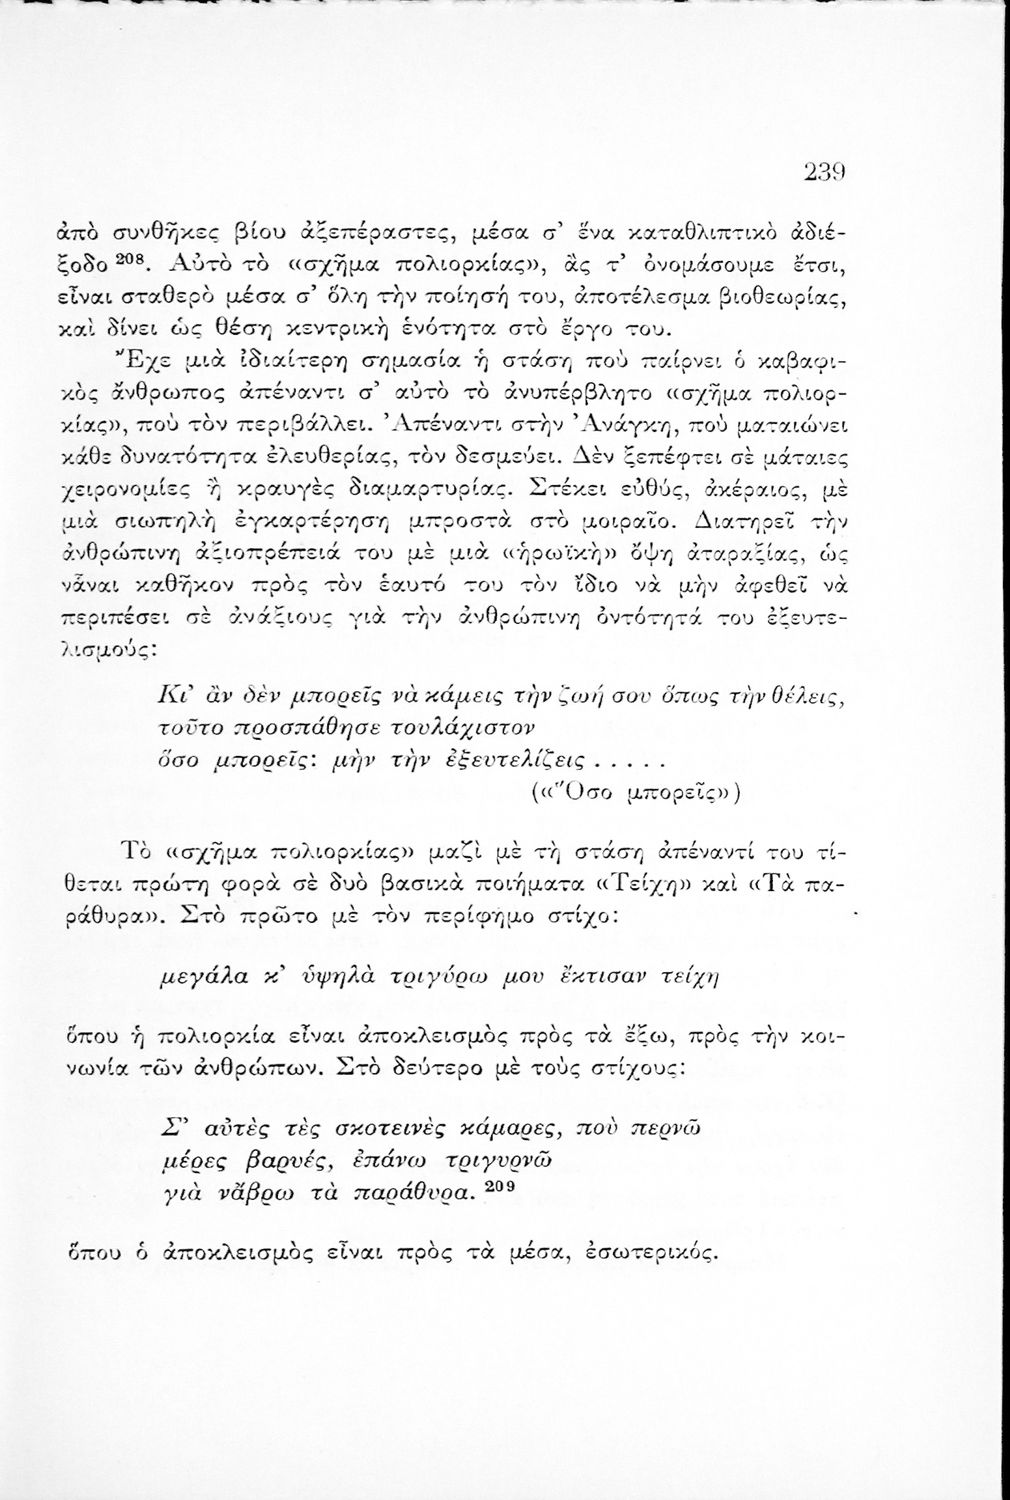 239
ἀπὸ συνθῆκες βίου ἀξεπέραστες, μέσα σ’ ἕνα καταθλιπτικὸ ἀδιέ-
ξοδο ²⁰⁸. Αὐτὸ τὸ «σχῆμα πολιορκίας», ἂς τ’ ὀνομάσουμε ἔτσι,
εἶναι σταθερὸ μέσα σ’ ὅλη τὴν ποίησή του, ἀποτέλεσμα βιοθεωρίας,
καὶ δίνει ὡς θέση κεντρικὴ ἑνότητα στὸ ἔργο του.
Ἔχε μιὰ ἰδιαίτερη σημασία ἡ στάση ποὺ παίρνει ὁ καβαφι-
κὸς ἄνθρωπος ἀπέναντι σ’ αὐτὸ τὸ ἀνυπέρβλητο «σχῆμα πολιορ-
κίας», ποὺ τὸν περιβάλλει. Ἀπέναντι στὴν Ἀνάγκη, ποὺ ματαιώνει
κάθε δυνατότητα ἐλευθερίας, τὸν δεσμεύει. Δὲν ξεπέφτει σὲ μάταιες
χειρονομίες ἢ κραυγὲς διαμαρτυρίας. Στέκει εὐθύς, ἀκέραιος, μὲ
μιὰ σιωπηλὴ ἐγκαρτέρηση μπροστὰ στὸ μοιραῖο. Διατηρεῖ τὴν
ἀνθρώπινη ἀξιοπρέπειά του μὲ μιὰ «ἡρωϊκὴ» ὄψη ἀταραξίας, ὡς
νἆναι καθῆκον πρὸς τὸν ἑαυτό του τὸν ἴδιο νὰ μὴν ἀφεθεῖ νὰ
περιπέσει σὲ ἀνάξιους γιὰ τὴν ἀνθρώπινη ὀντότητά του ἐξευτε-
λισμούς:
Κι’ ἂν δὲν μπορεῖς νὰ κάμεις τὴν ζωή σου ὅπως τὴν θέλεις,
τοῦτο προσπάθησε τουλάχιστον
ὅσο μπορεῖς: μὴν τὴν ἐξευτελίζεις . . . . .
(«Ὅσο μπορεῖς»)
Τὸ «σχῆμα πολιορκίας» μαζὶ μὲ τὴ στάση ἀπέναντί του τί-
θεται πρώτη φορὰ σὲ δυὸ βασικὰ ποιήματα «Τείχη» καὶ «Τὰ πα-
ράθυρα». Στὸ πρῶτο μὲ τὸν περίφημο στίχο:
μεγάλα κ’ ὑψηλὰ τριγύρω μου ἔκτισαν τείχη
ὅπου ἡ πολιορκία εἶναι ἀποκλεισμὸς πρὸς τὰ ἔξω, πρὸς τὴν κοι-
νωνία τῶν ἀνθρώπων. Στὸ δεύτερο μὲ τοὺς στίχους:
Σ’ αὐτὲς τὲς σκοτεινὲς κάμαρες, ποὺ περνῶ
μέρες βαρυές, ἐπάνω τριγυρνῶ
γιὰ νἄβρω τὰ παράθυρα. ²⁰⁹
ὅπου ὁ ἀποκλεισμὸς εἶναι πρὸς τὰ μέσα, ἐσωτερικός.